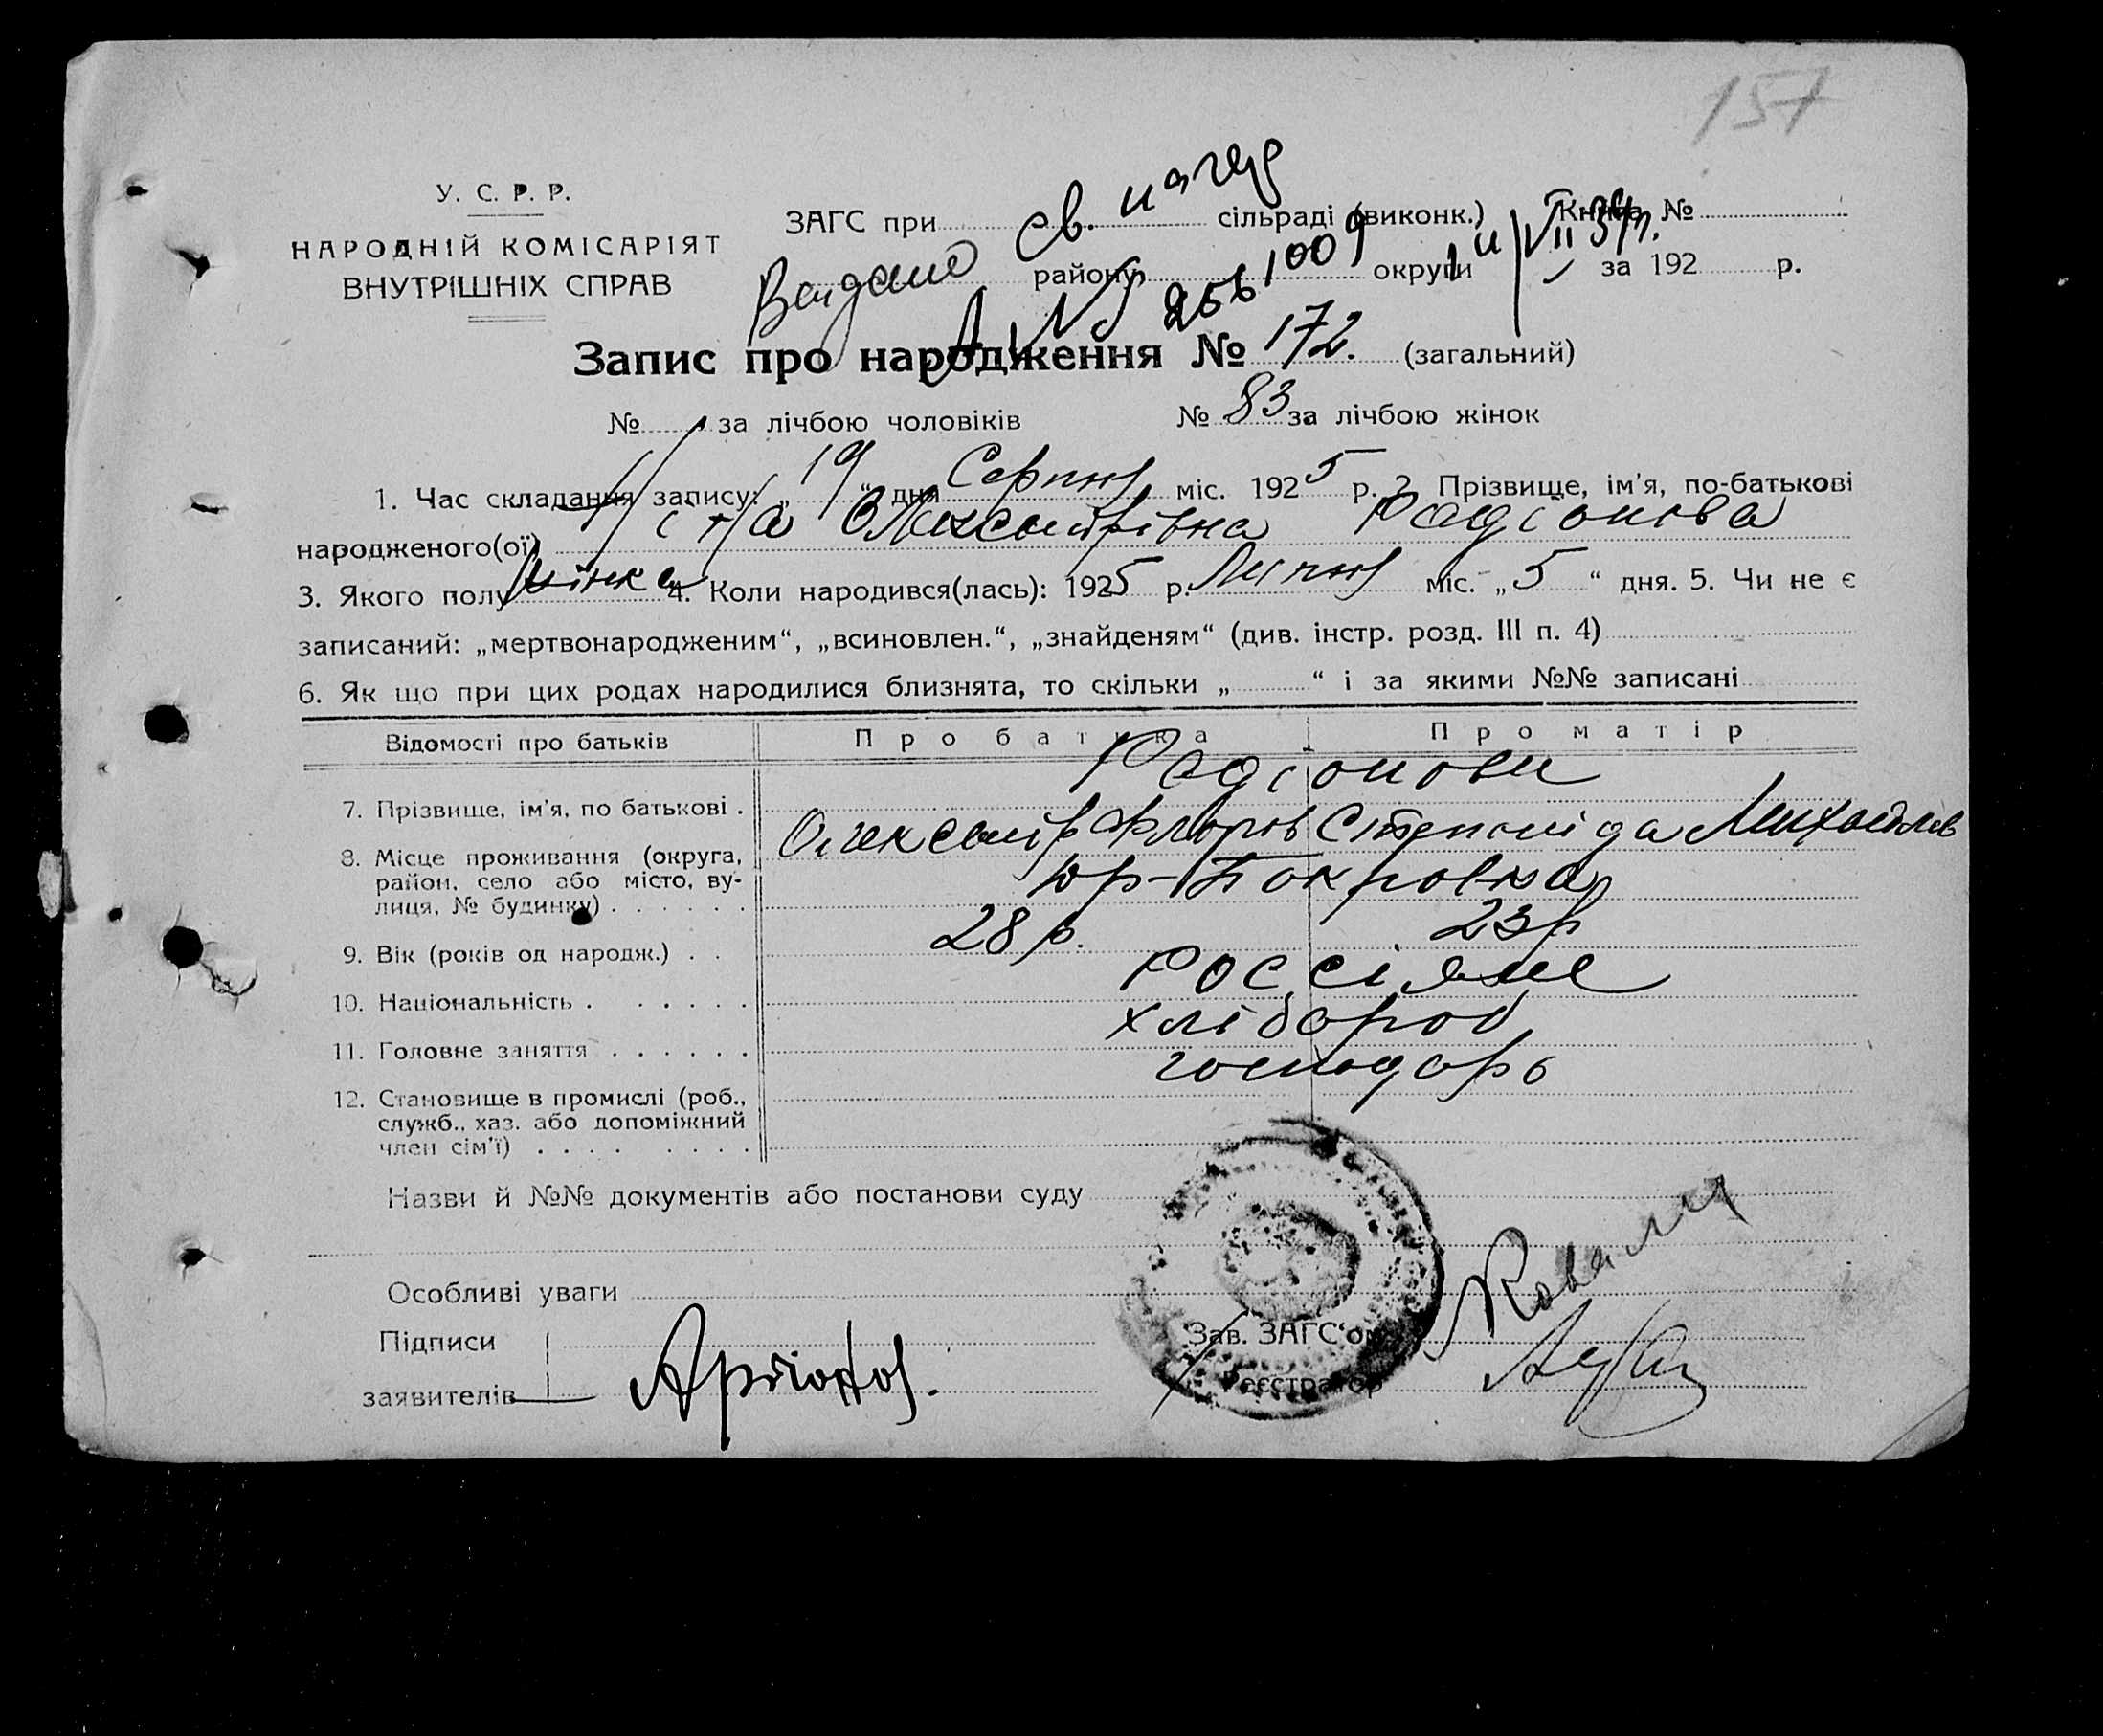 157
У. С. Р. Р.
НАРОДНІЙ КОМІСАРІЯТ
ВНУТРІШНІХ СПРАВ
ЗАГС при сільраді (виконк.) Книга №
району округи за 192 р.
Видано св.
256100
Запис про народження № 172. (загальний)
№ за лічбою чоловіків № 83 за лічбою жінок
1. Час складання запису: „ 19 “ дня Серпня міс. 1925 р. 2. Прізвище, ім'я, по-батькові
народженого(ої) Олександрівна Радіонова
3. Якого полу жінка 4. Коли народився(лась): 1925 р. Липня міс. „ 5 “ дня. 5. Чи не є
записаний: „мертвонародженим“, „всиновлен.“, „знайденям“ (див. інстр. розд. III п. 4)
6. Як що при цих родах народилися близнята, то скільки „ “ і за якими №№ записані
Відомості про батьків Про батька Про матір
Радіонови
7. Прізвище, ім'я, по батькові . Олександр Флоров Степанида Михайлов
8. Місце проживання (округа, район, село або місто, вулиця, № будинку) . . . . . . Юр-Покровка
9. Вік (років од народж.) . . 28 р. 23 р
10. Національність . . . . . . Россіяне
11. Головне заняття . . . . . . хлібороб
господарь
12. Становище в промислі (роб.,
служб., хаз. або допоміжний
член сім'ї) . . . . . . . .
Назви й №№ документів або постанови суду
Особливі уваги
Підписи
заявителів
Зав. ЗАГС'ом
Реєстратор